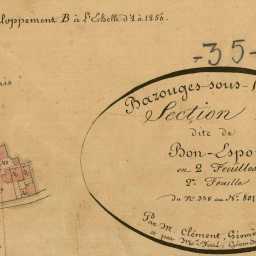 loppement B à l'Echelle d'1 à 1250.
-35-
Bazouges-sous-
Section
dite de
Bon-Espo
en 2 Feuilles
2e Feuille
du No 350 au No 801
Par M. Clément, Géom